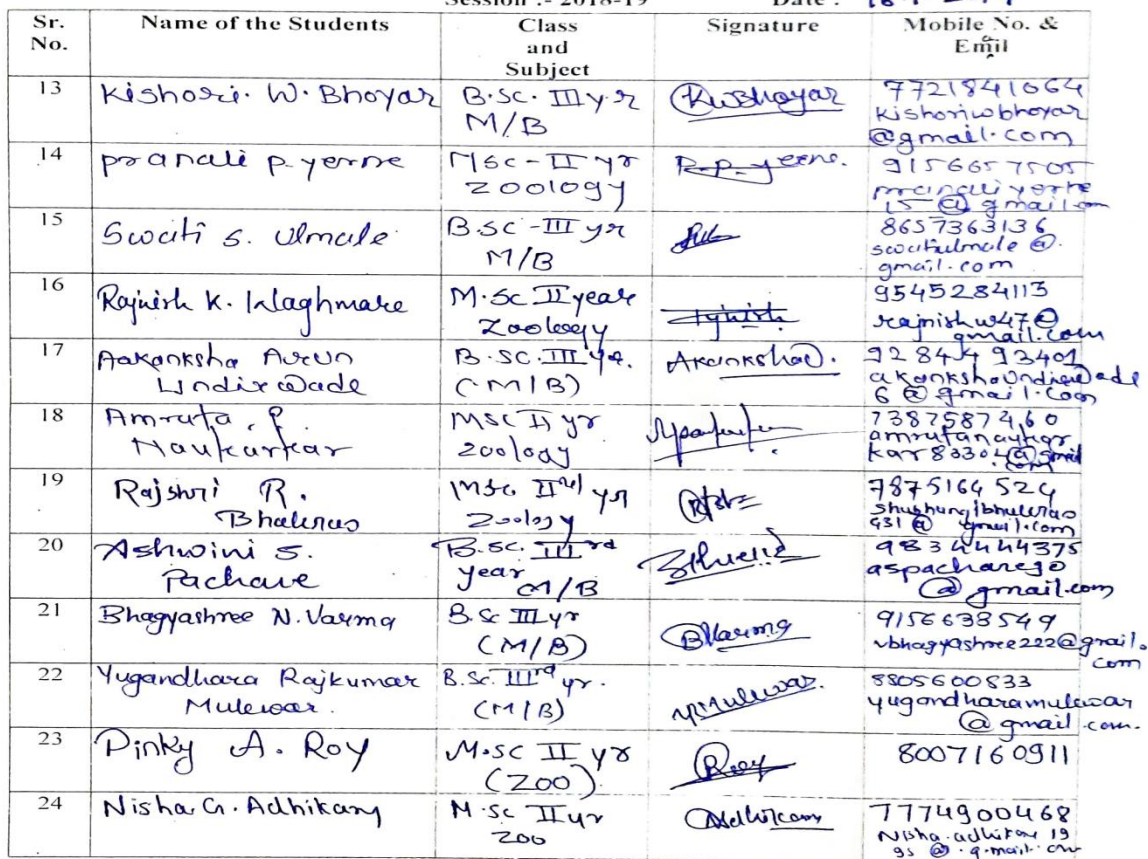 Session :- 2018-19 Date :
Sr. No. Name of the Students Class and Subject Signature Mobile No. & Email
13 Kishori. W. Bhoyar B.SC. III y.r M/B KWBhoyar 7721841064
kishoriwbhoyar
@gmail.com
14 pranali p. yerne MSC-II yr zoology P.P. yerne. 9156657505
15 @ gmail.com
15 Swati S. Ulmale B.SC-III yr M/B 8657363136
swatiulmale @
gmail.com
16 Rajnish K. Waghmare M.Sc II year Zoology 9545284113
rajnishw47@
gmail.com
17 Aakanksha Arun Undirwade B.SC.III yr. (M/B) Akanksha 9284493401
akankshaundirwade
6 @ gmail.com
18 Amruta. P. Naukarkar MSC II yr zoology 7387587460
amrutanaukar
kar83304@gmail
.com
19 Rajshri R. Bhalerao MSc. IInd yr Zoology 7875164524
931 @ gmail.com
20 Ashwini S. Pachare B.sc. IIIrd year M/B 9834444375
aspachare30
@ gmail.com
21 Bhagyashree N. Varma B.Sc III yr (M/B) BVarma 9156638549
vbhagyashree222@gmail.
com
22 Yugandhara Rajkumar Mulewar. B.Sc. IIIrd yr. (M/B) YRMulewar. 8805600833
yugandharamulewar
@ gmail.com.
23 Pinky A. Roy M.SC II yr (ZOO) Roy 8007160911
24 Nisha G. Adhikary M.Sc II yr ZOO Adhikary 7774900468
Nisha.adhikary 19
95 @ .gmail.com